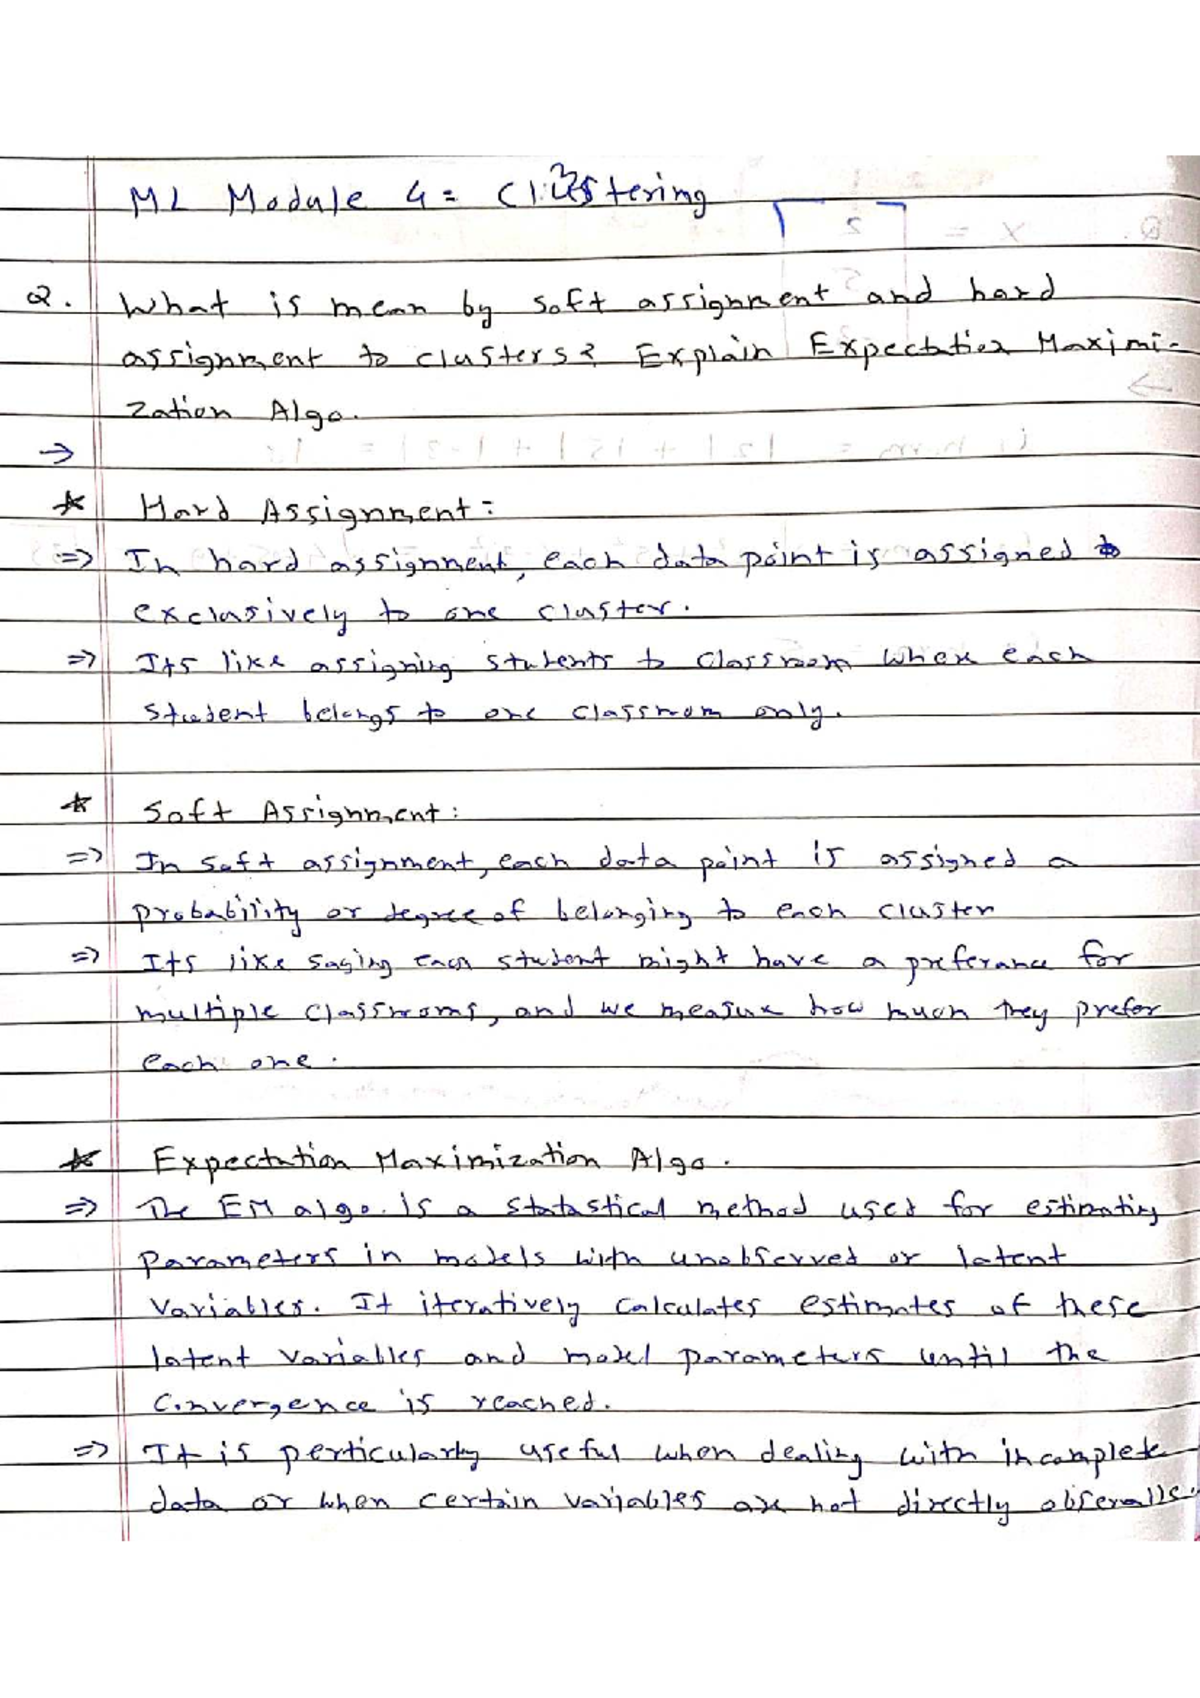 ML Module 4 = Clustering
Q. What is mean by soft assignment and hard
assignment to clusters? Explain Expectation Maximi-
zation Algo.
→
* Hard Assignment:
=> In hard assignment, each data point is assigned to
exclusively to one cluster.
=> Its like assigning students to classroom where each
student belongs to one classroom only.
* Soft Assignment:
=> In soft assignment, each data point is assigned a
probability or degree of belonging to each cluster
=> Its like saying each student might have a preferance for
multiple classrooms, and we measure how much they prefer
each one.
* Expectation Maximization Algo.
=> The EM algo. is a statastical method used for estimating
parameters in models with unobserved or latent
variables. It iteratively calculates estimates of these
latent variables and model parameters until the
convergence is reached.
=> It is perticularly useful when dealing with incomplete
data or when certain variables are not directly observable.